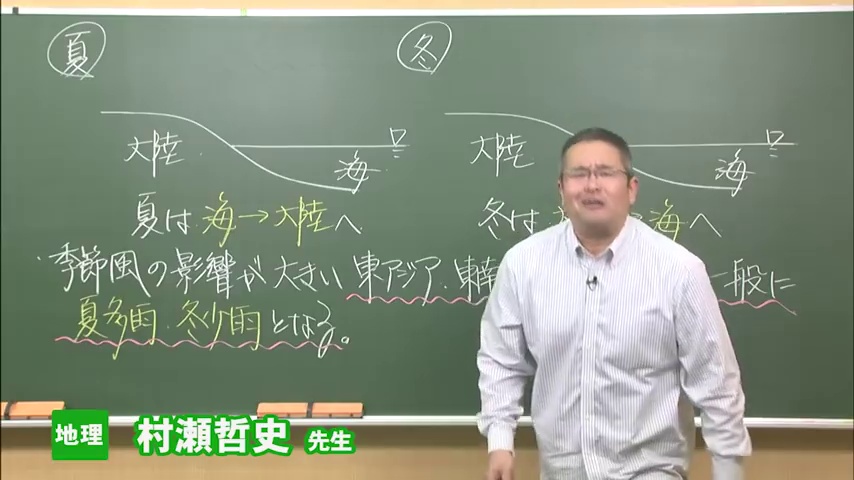 夏
冬
大陸
海
大陸
海
夏は 海→大陸へ
冬は 海へ
季節風の影響が大きい東アジア・東南 一般に
夏多雨・冬少雨となる。
地理 村瀬哲史 先生